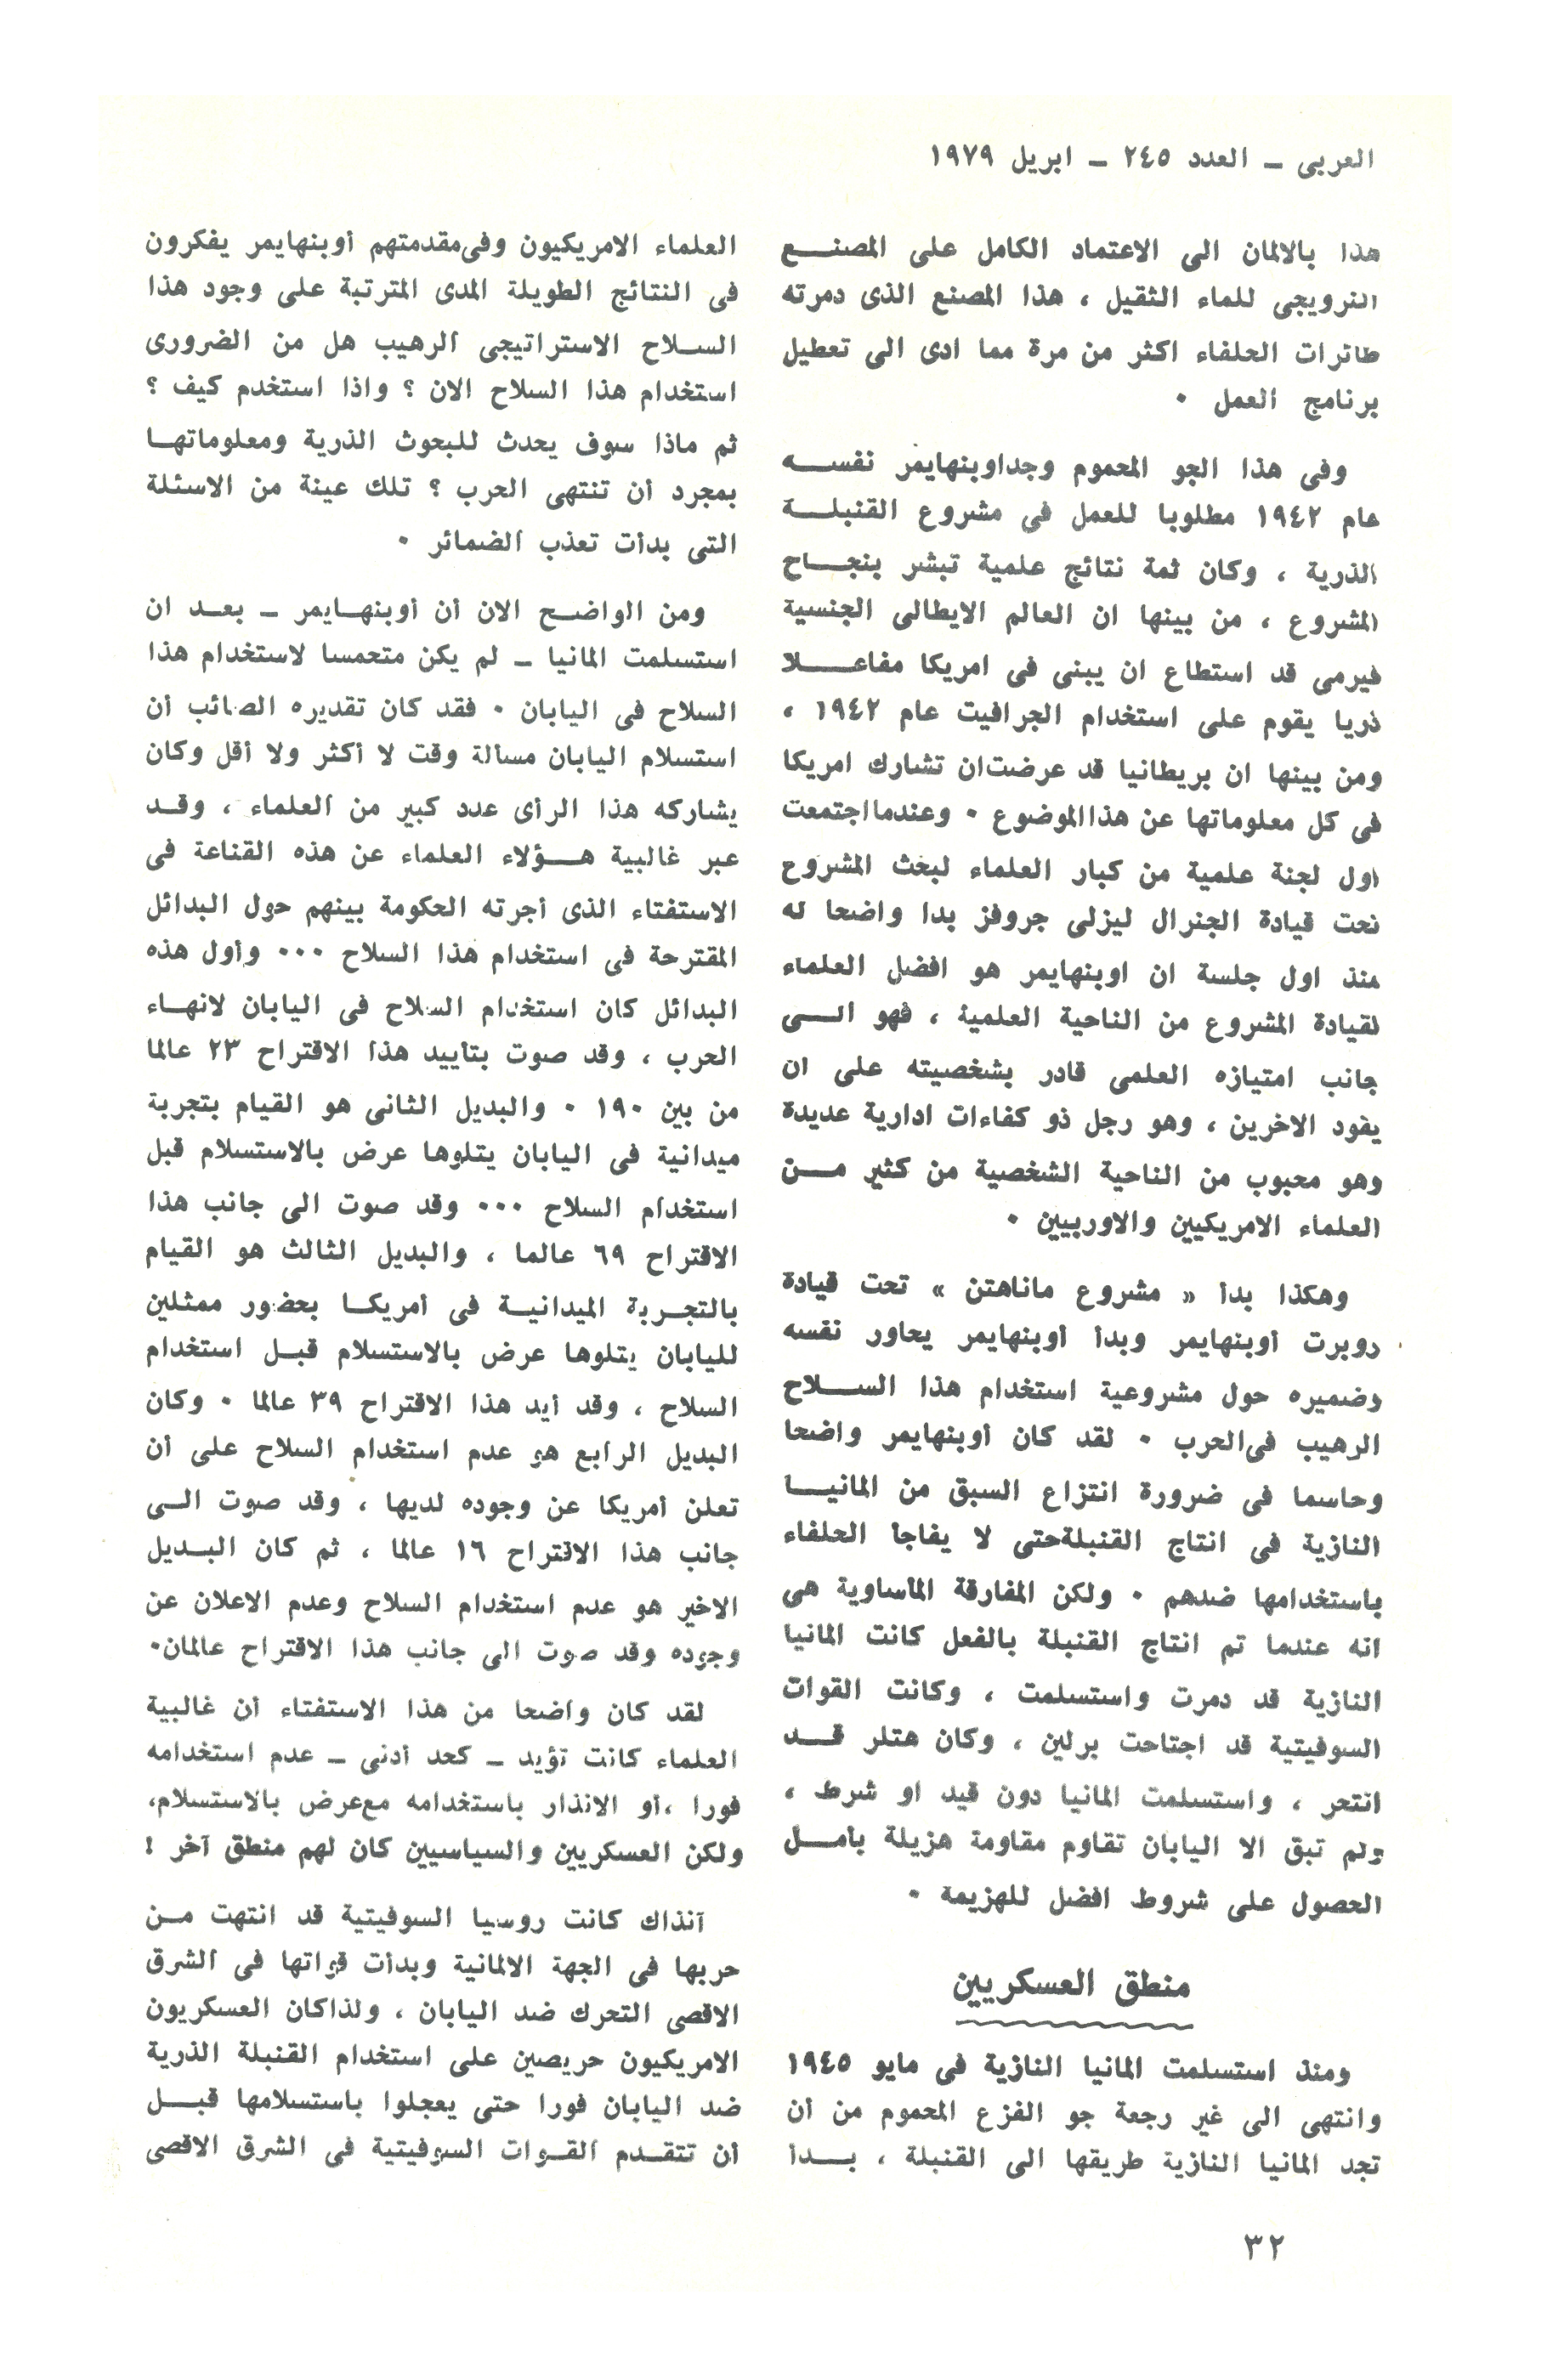 العربى ـ العدد ٢٤٥ ـ ابريل ١٩٧٩
هذا بالالمان الى الاعتماد الكامل على المصنع
النرويجى للماء الثقيل ، هذا المصنع الذى دمرته
طائرات الحلفاء اكثر من مرة مما ادى الى تعطيل
برنامج العمل ٠
وفى هذا الجو المحموم وجداوبنهايمر نفسه
عام ١٩٤٢ مطلوبا للعمل فى مشروع القنبلة
الذرية ، وكان ثمة نتائج علمية تبشر بنجاح
المشروع ، من بينها ان العالم الايطالى الجنسية
فيرمى قد استطاع ان يبنى فى امريكا مفاعلا
ذريا يقوم على استخدام الجرافيت عام ١٩٤٢ ،
ومن بينها ان بريطانيا قد عرضت ان تشارك امريكا
فى كل معلوماتها عن هذا الموضوع ٠ وعندما اجتمعت
اول لجنة علمية من كبار العلماء لبحث المشروع
تحت قيادة الجنرال ليزلى جروفز بدا واضحا له
منذ اول جلسة ان اوبنهايمر هو افضل العلماء
لقيادة المشروع من الناحية العلمية ، فهو الى
جانب امتيازه العلمى قادر بشخصيته على ان
يقود الاخرين ، وهو رجل ذو كفاءات ادارية عديدة
وهو محبوب من الناحية الشخصية من كثير من
العلماء الامريكيين والاوربيين ٠
وهكذا بدأ « مشروع ماناهتن » تحت قيادة
روبرت أوبنهايمر وبدأ أوبنهايمر يحاور نفسه
وضميره حول مشروعية استخدام هذا السلاح
الرهيب فى الحرب ٠ لقد كان أوبنهايمر واضحا
وحاسما فى ضرورة انتزاع السبق من المانيا
النازية فى انتاج القنبلة حتى لا يفاجأ الحلفاء
باستخدامها ضدهم ٠ ولكن المفارقة الماساوية هى
انه عندما تم انتاج القنبلة بالفعل كانت المانيا
النازية قد دمرت واستسلمت ، وكانت القوات
السوفيتية قد اجتاحت برلين ، وكان هتلر قد
انتحر ، واستسلمت المانيا دون قيد او شرط ،
ولم تبق الا اليابان تقاوم مقاومة هزيلة بأمل
الحصول على شروط افضل للهزيمة ٠
منطق العسكريين
ومنذ استسلمت المانيا النازية فى مايو ١٩٤٥
وانتهى الى غير رجعة جو الفزع المحموم من أن
تجد المانيا النازية طريقها الى القنبلة ، بدأ
العلماء الامريكيون وفى مقدمتهم أوبنهايمر يفكرون
فى النتائج الطويلة المدى المترتبة على وجود هذا
السلاح الاستراتيجى الرهيب هل من الضرورى
استخدام هذا السلاح الان ؟ واذا استخدم كيف ؟
ثم ماذا سوف يحدث للبحوث الذرية ومعلوماتها
بمجرد أن تنتهى الحرب ؟ تلك عينة من الاسئلة
التى بدأت تعذب الضمائر ٠
ومن الواضح الان أن أوبنهايمر ـ بعد ان
استسلمت المانيا ـ لم يكن متحمسا لاستخدام هذا
السلاح فى اليابان ٠ فقد كان تقديره الصائب أن
استسلام اليابان مسألة وقت لا أكثر ولا أقل وكان
يشاركه هذا الرأى عدد كبير من العلماء ، وقد
عبر غالبية هؤلاء العلماء عن هذه القناعة فى
الاستفتاء الذى أجرته الحكومة بينهم حول البدائل
المقترحة فى استخدام هذا السلاح ٠٠٠ وأول هذه
البدائل كان استخدام السلاح فى اليابان لانهاء
الحرب ، وقد صوت بتأييد هذا الاقتراح ٢٣ عالما
من بين ١٩٠ ٠ والبديل الثانى هو القيام بتجربة
ميدانية فى اليابان يتلوها عرض بالاستسلام قبل
استخدام السلاح ٠٠٠ وقد صوت الى جانب هذا
الاقتراح ٦٩ عالما ، والبديل الثالث هو القيام
بالتجربة الميدانية فى أمريكا بحضور ممثلين
لليابان يتلوها عرض بالاستسلام قبل استخدام
السلاح ، وقد أيد هذا الاقتراح ٣٩ عالما ٠ وكان
البديل الرابع هو عدم استخدام السلاح على أن
تعلن أمريكا عن وجوده لديها ، وقد صوت الى
جانب هذا الاقتراح ١٦ عالما ، ثم كان البديل
الاخير هو عدم استخدام السلاح وعدم الاعلان عن
وجوده وقد صوت الى جانب هذا الاقتراح عالمان٠
لقد كان واضحا من هذا الاستفتاء أن غالبية
العلماء كانت تؤيد ـ كحد أدنى ـ عدم استخدامه
فورا ،أو الانذار باستخدامه مع عرض بالاستسلام،
ولكن العسكريين والسياسيين كان لهم منطق آخر !
آنذاك كانت روسيا السوفيتية قد انتهت من
حربها فى الجهة الالمانية وبدأت قواتها فى الشرق
الاقصى التحرك ضد اليابان ، ولذا كان العسكريون
الامريكيون حريصين على استخدام القنبلة الذرية
ضد اليابان فورا حتى يعجلوا باستسلامها قبل
أن تتقدم القوات السوفيتية فى الشرق الاقصى
٣٢